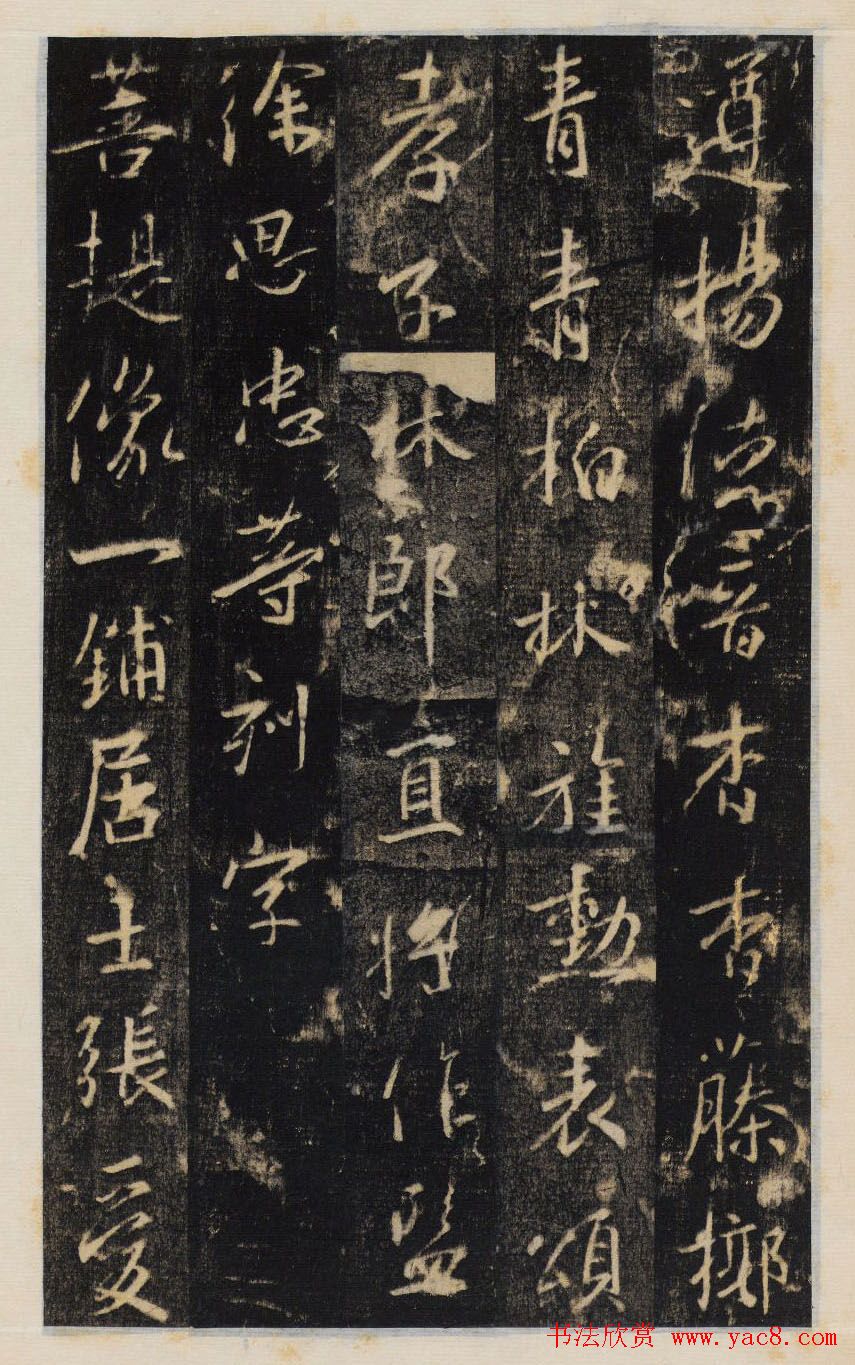 遵揚德音杳杳藤擲
青青柏林旌勳表頌
孝子林郎直將作監
徐思忠等刻字
菩提像一鋪居士張愛
书法欣赏 www.yac8.com